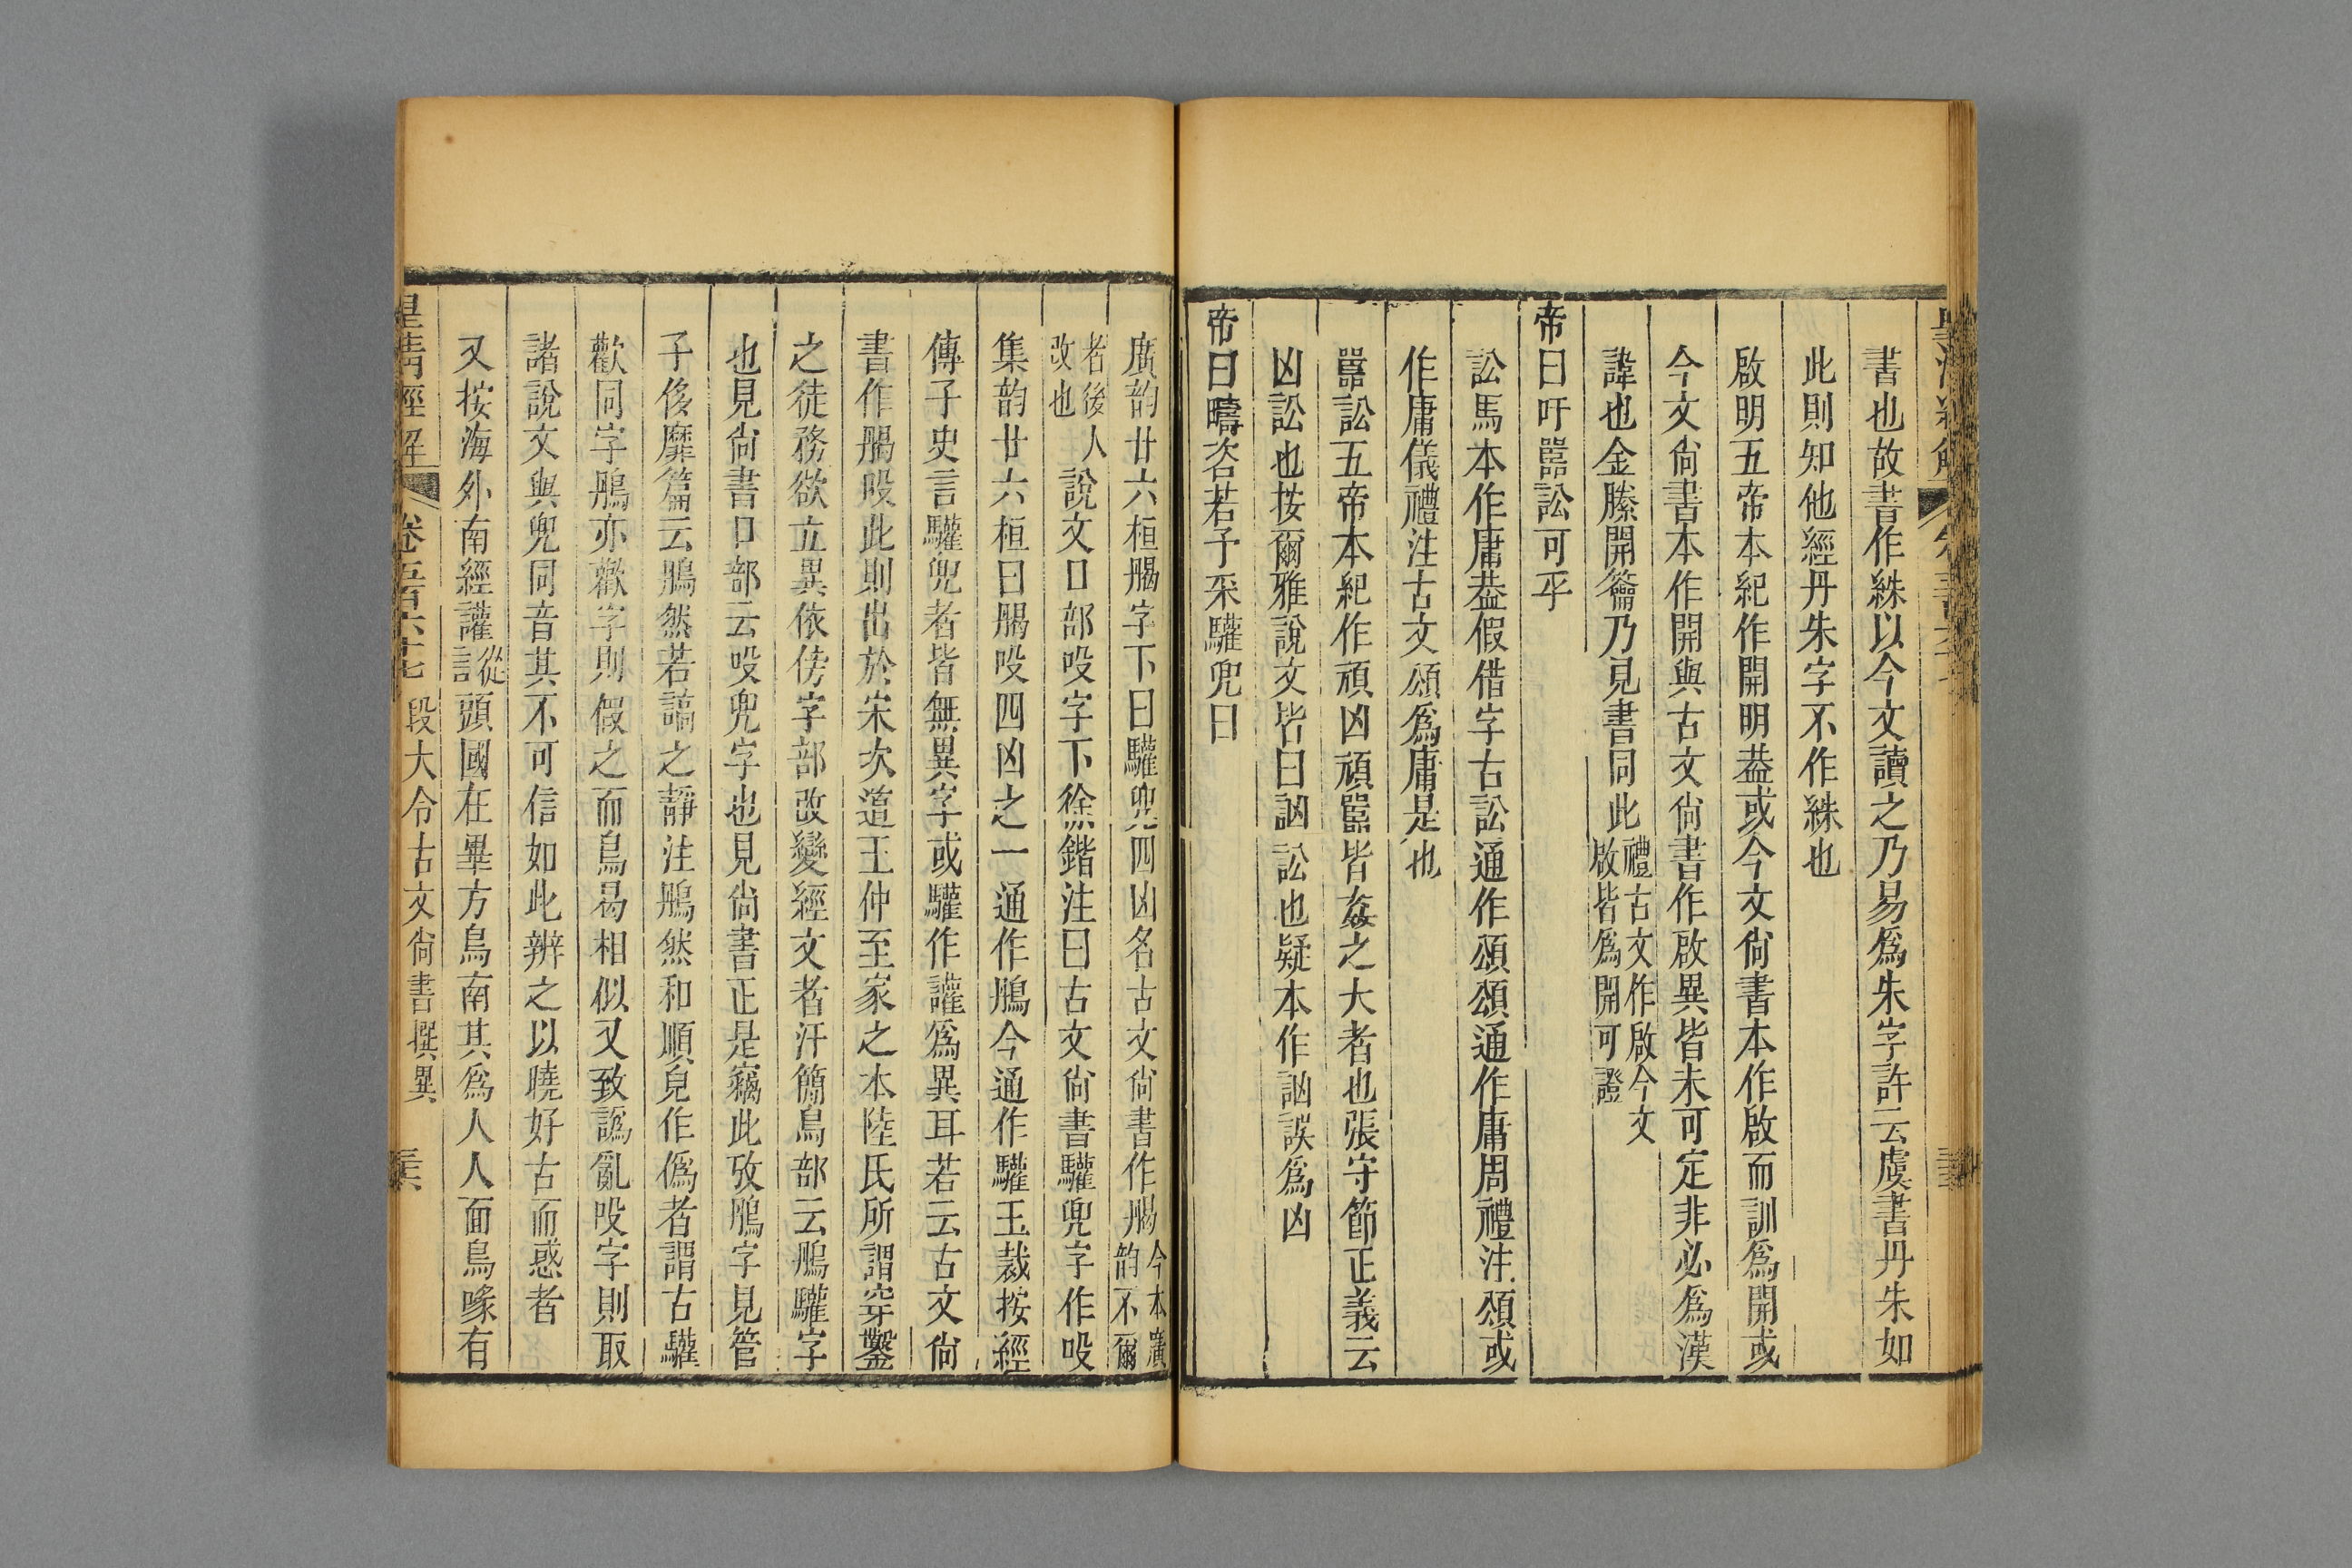 書也故書作絑以今文讀之乃易爲朱字許云虞書丹朱如
此則知他經丹朱字不作絑也
啟明五帝本紀作開明葢或今文尙書本作啟而訓爲開或
今文尙書本作開與古文尙書作啟異皆未可定非必爲漢
諱也金縢開籥乃見書同此禮古文作啟今文啟皆爲開可證
帝曰吁嚚訟可乎
訟馬本作庸葢假借字古訟通作頌頌通作庸周禮注頌或
作庸儀禮注古文頌爲庸是也
嚚訟五帝本紀作頑凶頑嚚皆姦之大者也張守節正義云
凶訟也按爾雅說文皆曰訩訟也疑本作訩誤爲凶
帝曰疇咨若予采驩兜曰
廣韵廿六桓䳎字下曰驩兜四凶名古文尙書作䳎今本廣韵不爾
者後人改也說文口部吺字下徐鍇注曰古文尙書驩兜字作吺
集韵廿六桓曰䳎吺四凶之一通作鴅今通作驩玉裁按經
傳子史言驩兜者皆無異字或驩作讙爲異耳若云古文尙
書作䳎吺此則出於宋次道王仲至家之本陸氏所謂穿鑿
之徒務欲立異依傍字部改變經文者汗簡鳥部云鴅驩字
也見尙書口部云吺兜字也見尙書正是竊此攷鴅字見管
子侈靡篇云鴅然若謞之靜注鴅然和順皃作僞者謂古驩
歡同字鴅亦歡字則假之而鳥昜相似又致譌亂吺字則取
諸說文與兜同音其不可信如此辨之以曉好古而惑者
又按海外南經讙從言頭國在畢方鳥南其爲人人面鳥喙有
皇淸經解 卷五百六十七 段大令古文尙書撰異 三六